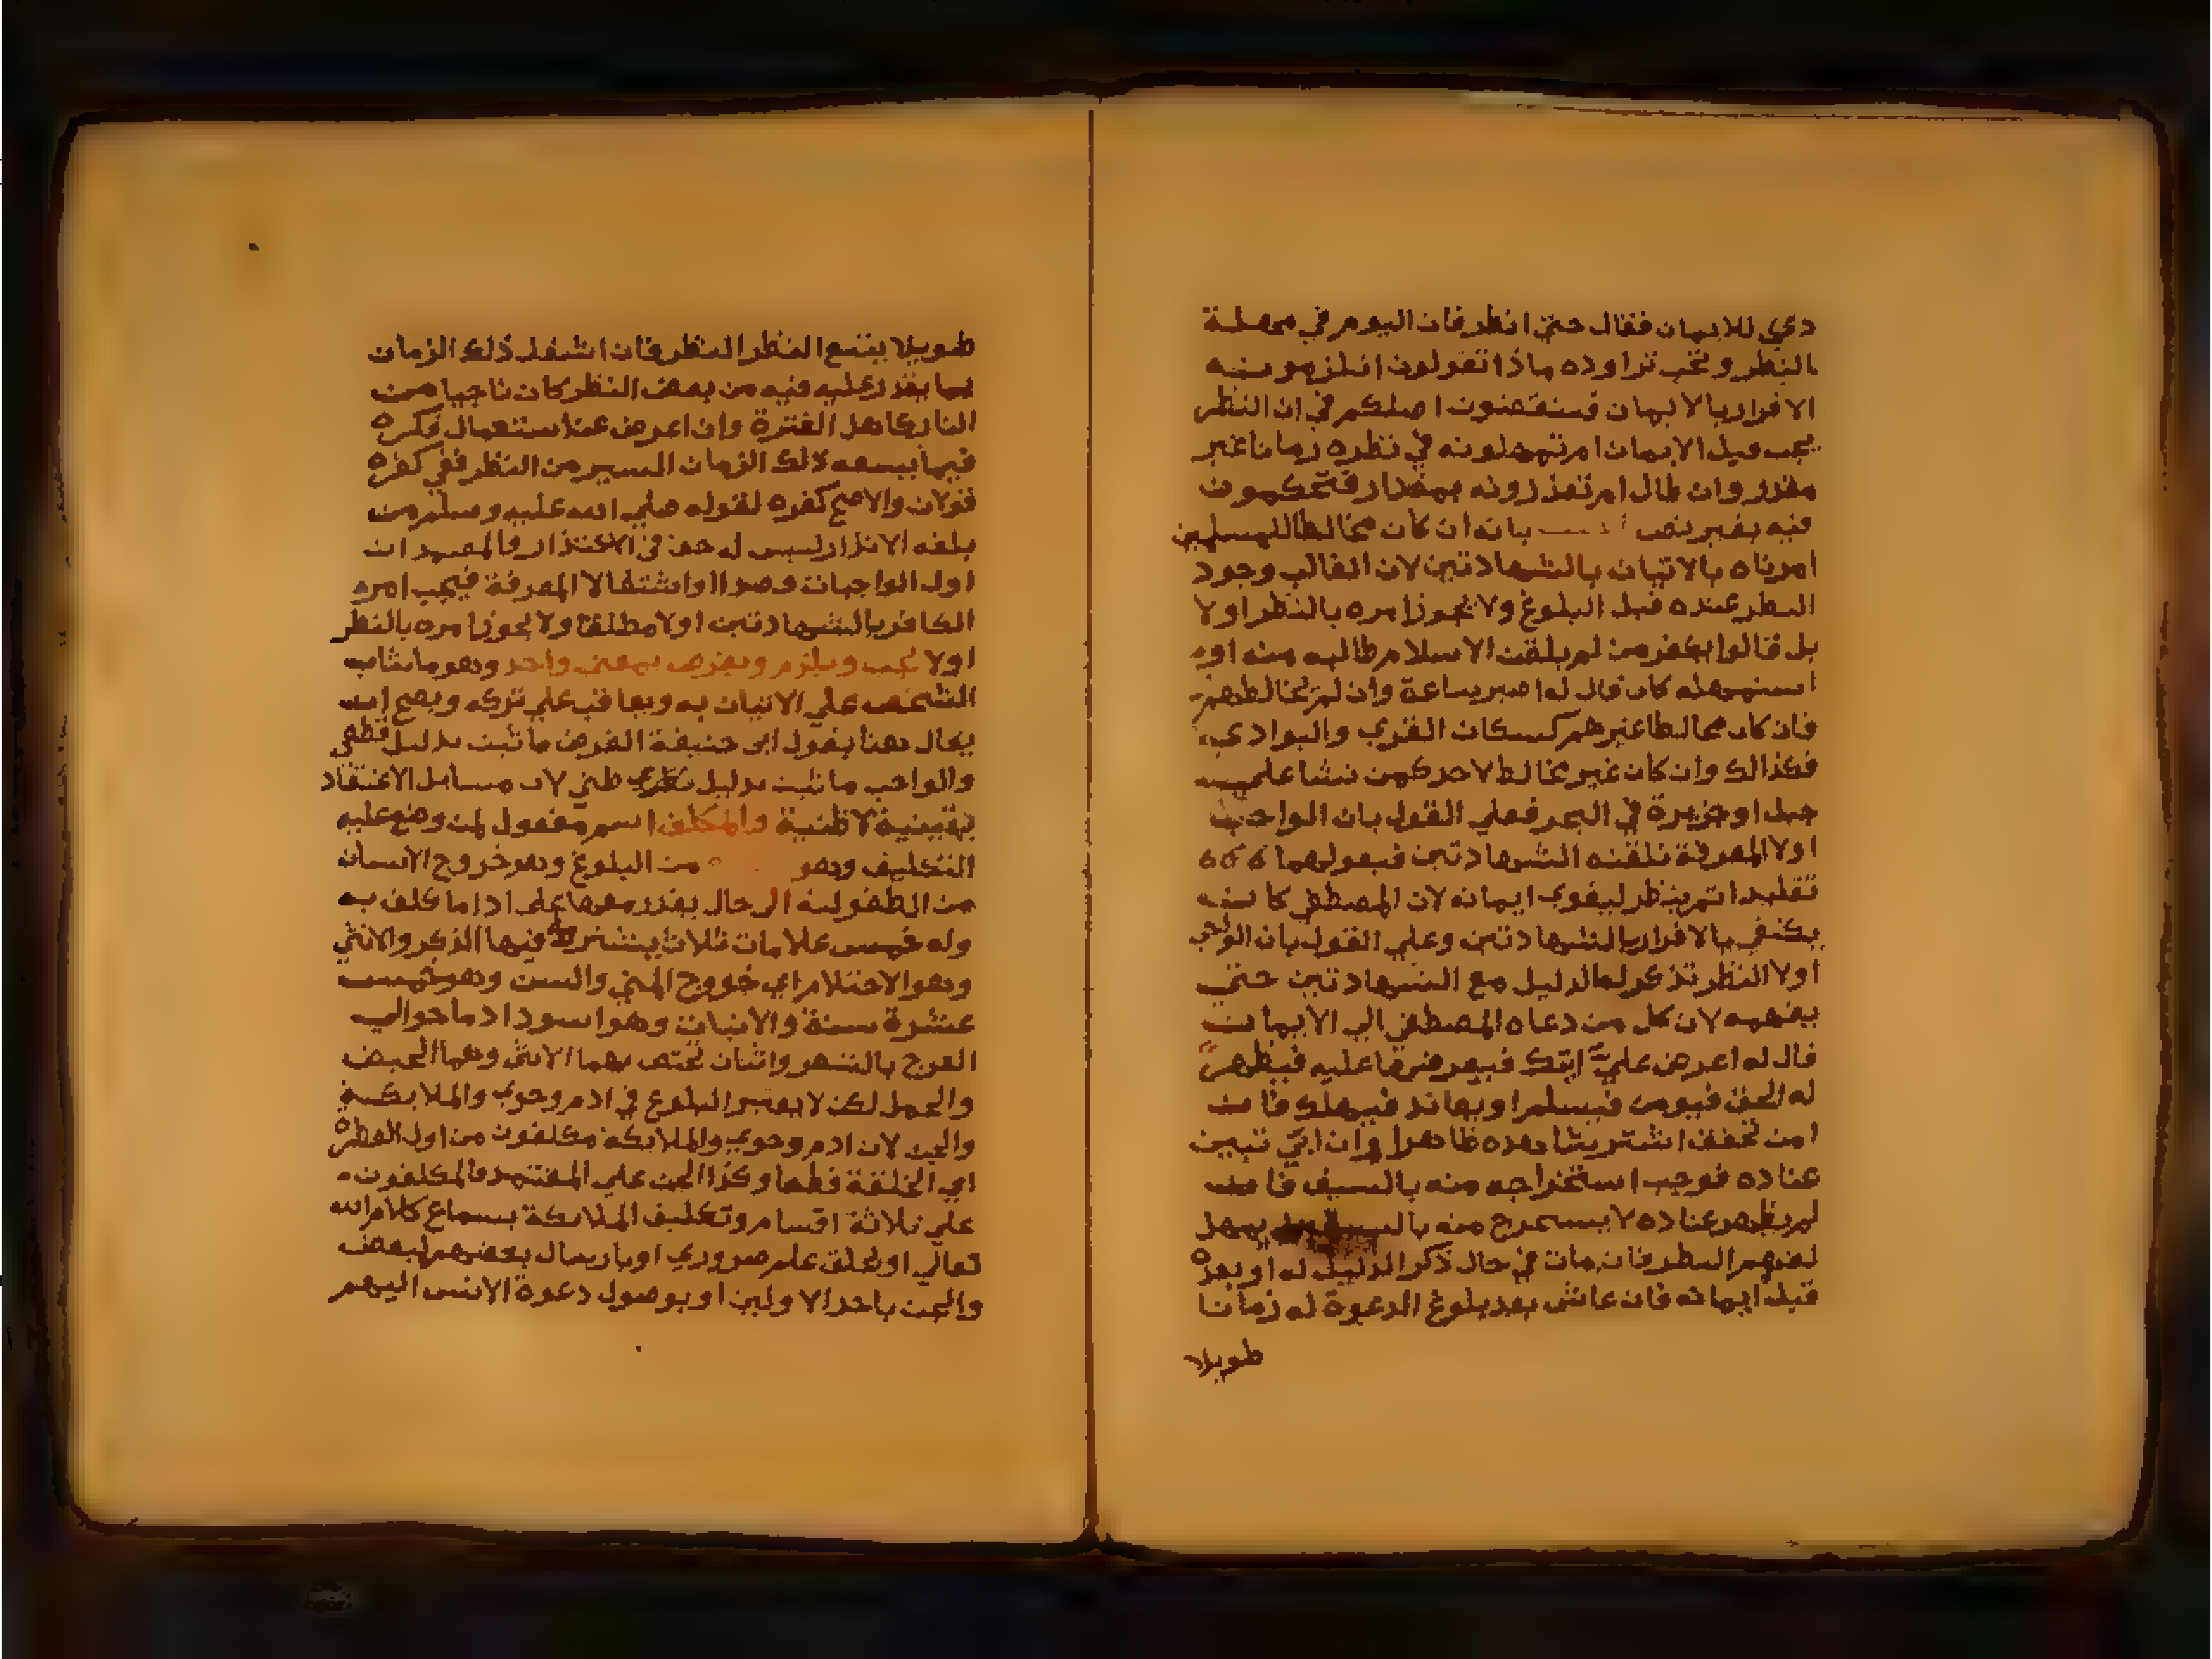 دعي للايمان فقال حتي انظر فان اليوم في مهلة
النظر وتحت تراوده ماذا تقولون اتلزمونه
الاقرار بالايمان فتنقضون اصلكم في ان النظر
يجب قبل الايمان ام تمهلونه في نظره زمانا غير
مقدر وان طال ام تقدرونه بمقدار فتحكمون
فيه بغير نص بانه ان كان مخالطا للمسلمين
امرناه بالاتيان بالشهادتين لان الغالب وجود
النظر عنده قبل البلوغ ولا يجوز امره بالنظر اولا
بل قالوا يكفر من لم يلقن الاسلام طالبه منه او
استمهله كان قال له اصبر ساعة وان لم يخالطهم
فان كان مخالطا غيرهم كسكان القري والبوادي
فكذالك وان كان غير مخالط لاحد كمن نشا علي
جبل او جزيرة في البحر فعلي القول بان الواجب
اولا المعرفة نلقنه الشهادتين فيقولهما
تقليدا ثم ينظر ليقوي ايمانه لان المصطفي كان
يكتفي بالاقرار بالشهادتين وعلي القول بان الواجب
اولا النظر نذكر له الدليل مع الشهادتين حتي
يفهمه لان كل من دعاه المصطفي الي الايمان
قال له اعرض علي ايتك فيعرضها عليه فيظهر
له الحق فيومن فيسلم او يعاند فيهلك فان
امن تحقق استرشاده ظاهرا وان ابي تبين
عناده فوجب استخراجه منه بالسيف فان
لم يظهر عناده لا يستخرج منه بالسيف بل يمهل
لفهم النظر فان مات في حال ذكر الدليل له او بعده
قبل ايمانه فان عاش بعد بلوغ الدعوة له زمانا
طويلا
طويلا يتسع النظر النظر فان اشغل ذلك الزمان
بما يقدر عليه فيه من بعض النظر كان ناجيا من
النار كاهل الفترة وان اعرض عن استعمال فكره
فيما يسعه ذلك الزمان اليسير من النظر ففي كفره
قولان والاصح كفره لقوله صلي الله عليه وسلم من
بلغه الانذار ليس له حق في الاعتذار فالمعتمد ان
اول الواجبات قصدا واشتغالا المعرفة فيجب امره
الكافر بالشهادتين اولا مطلقا ولا يجوز امره بالنظر
اولا يجب ويلزم ويفرض بمعني واحد وهو ما يثاب
الشخص علي الاتيان به ويعاقب علي تركه ويصح ان
يقال هنا بقول ابي حنيفة الفرض ما ثبت بدليل قطعي
والواجب ما ثبت بدليل ظني لان مسايل الاعتقاد
يقينية لا ظنية والمكلف اسم مفعول لمن وضع عليه
التكليف وهو من البلوغ وهو خروج الانسان
من الطفولية الي حال يقدر معها علي اداما كلف به
وله خمس علامات ثلاث يشترك فيها الذكر والانثي
وهو الاحتلام اي خروج المني والسن وهو خمس
عشرة سنة والانبات وهو اسوداد ما حوالي
الفرج بالشعر واثنان تختص بهما الانثي وهما الحيض
والحمل لكن لا يعتبر البلوغ في ادم وحوي والملايكة
والجن لان ادم وحوي والملايكة مكلفون من اول الفطرة
اي الخلقة قطعا وكذا الجن علي المعتمد فالمكلفون
علي ثلاثة اقسام وتكليف الملايكة بسماع كلام الله
تعالي او بخلق علم ضروري او بارسال بعضهم لبعض
والجن باحد الاولين او بوصول دعوة الانس اليهم